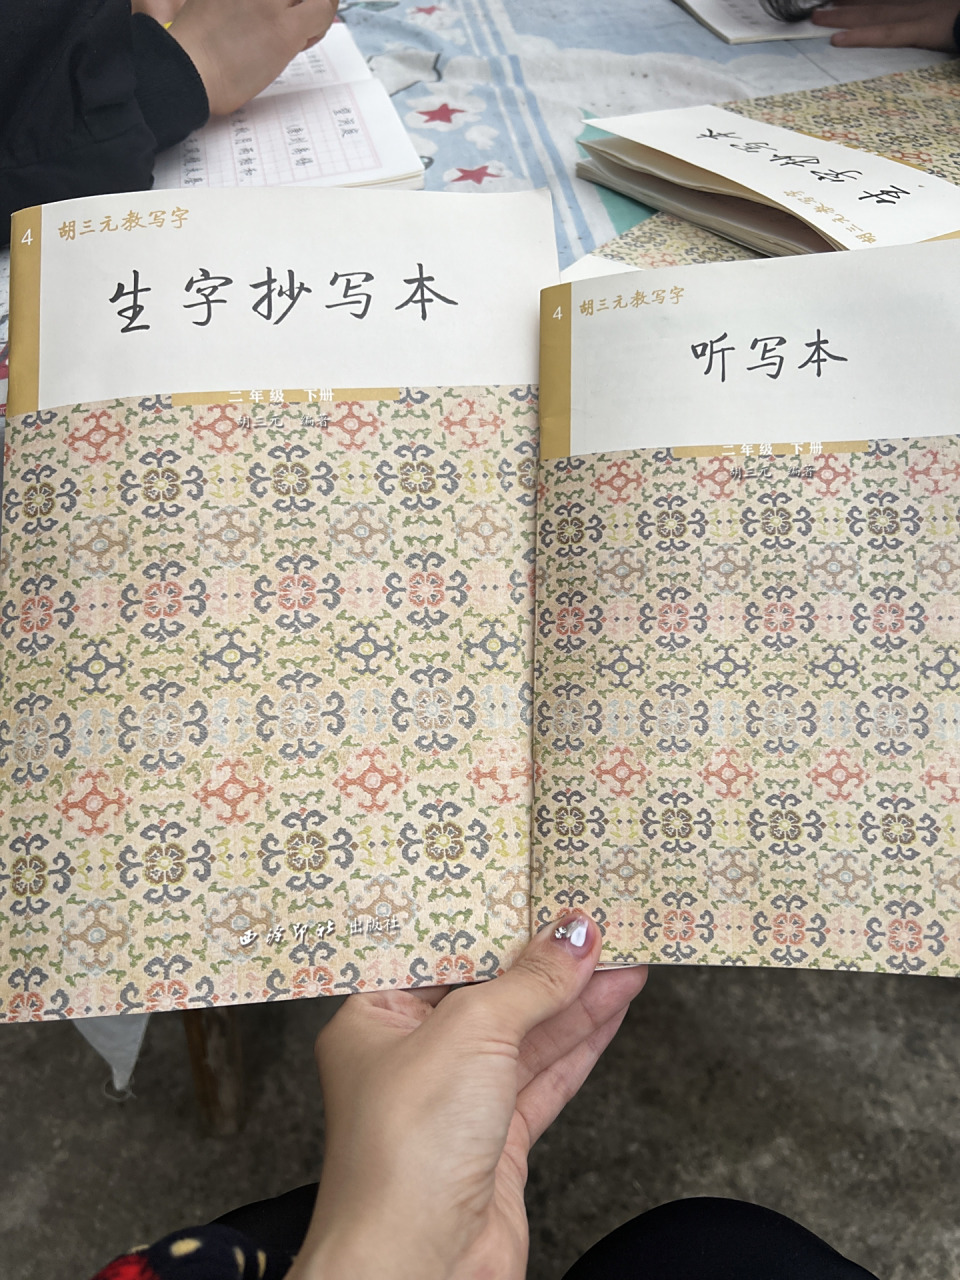 4
胡三元教写字
生字抄写本
二年级 下册
胡三元 编著
西泠印社 出版社
4
胡三元教写字
听写本
二年级 下册
胡三元 编著
生字抄写本
胡三元教写字